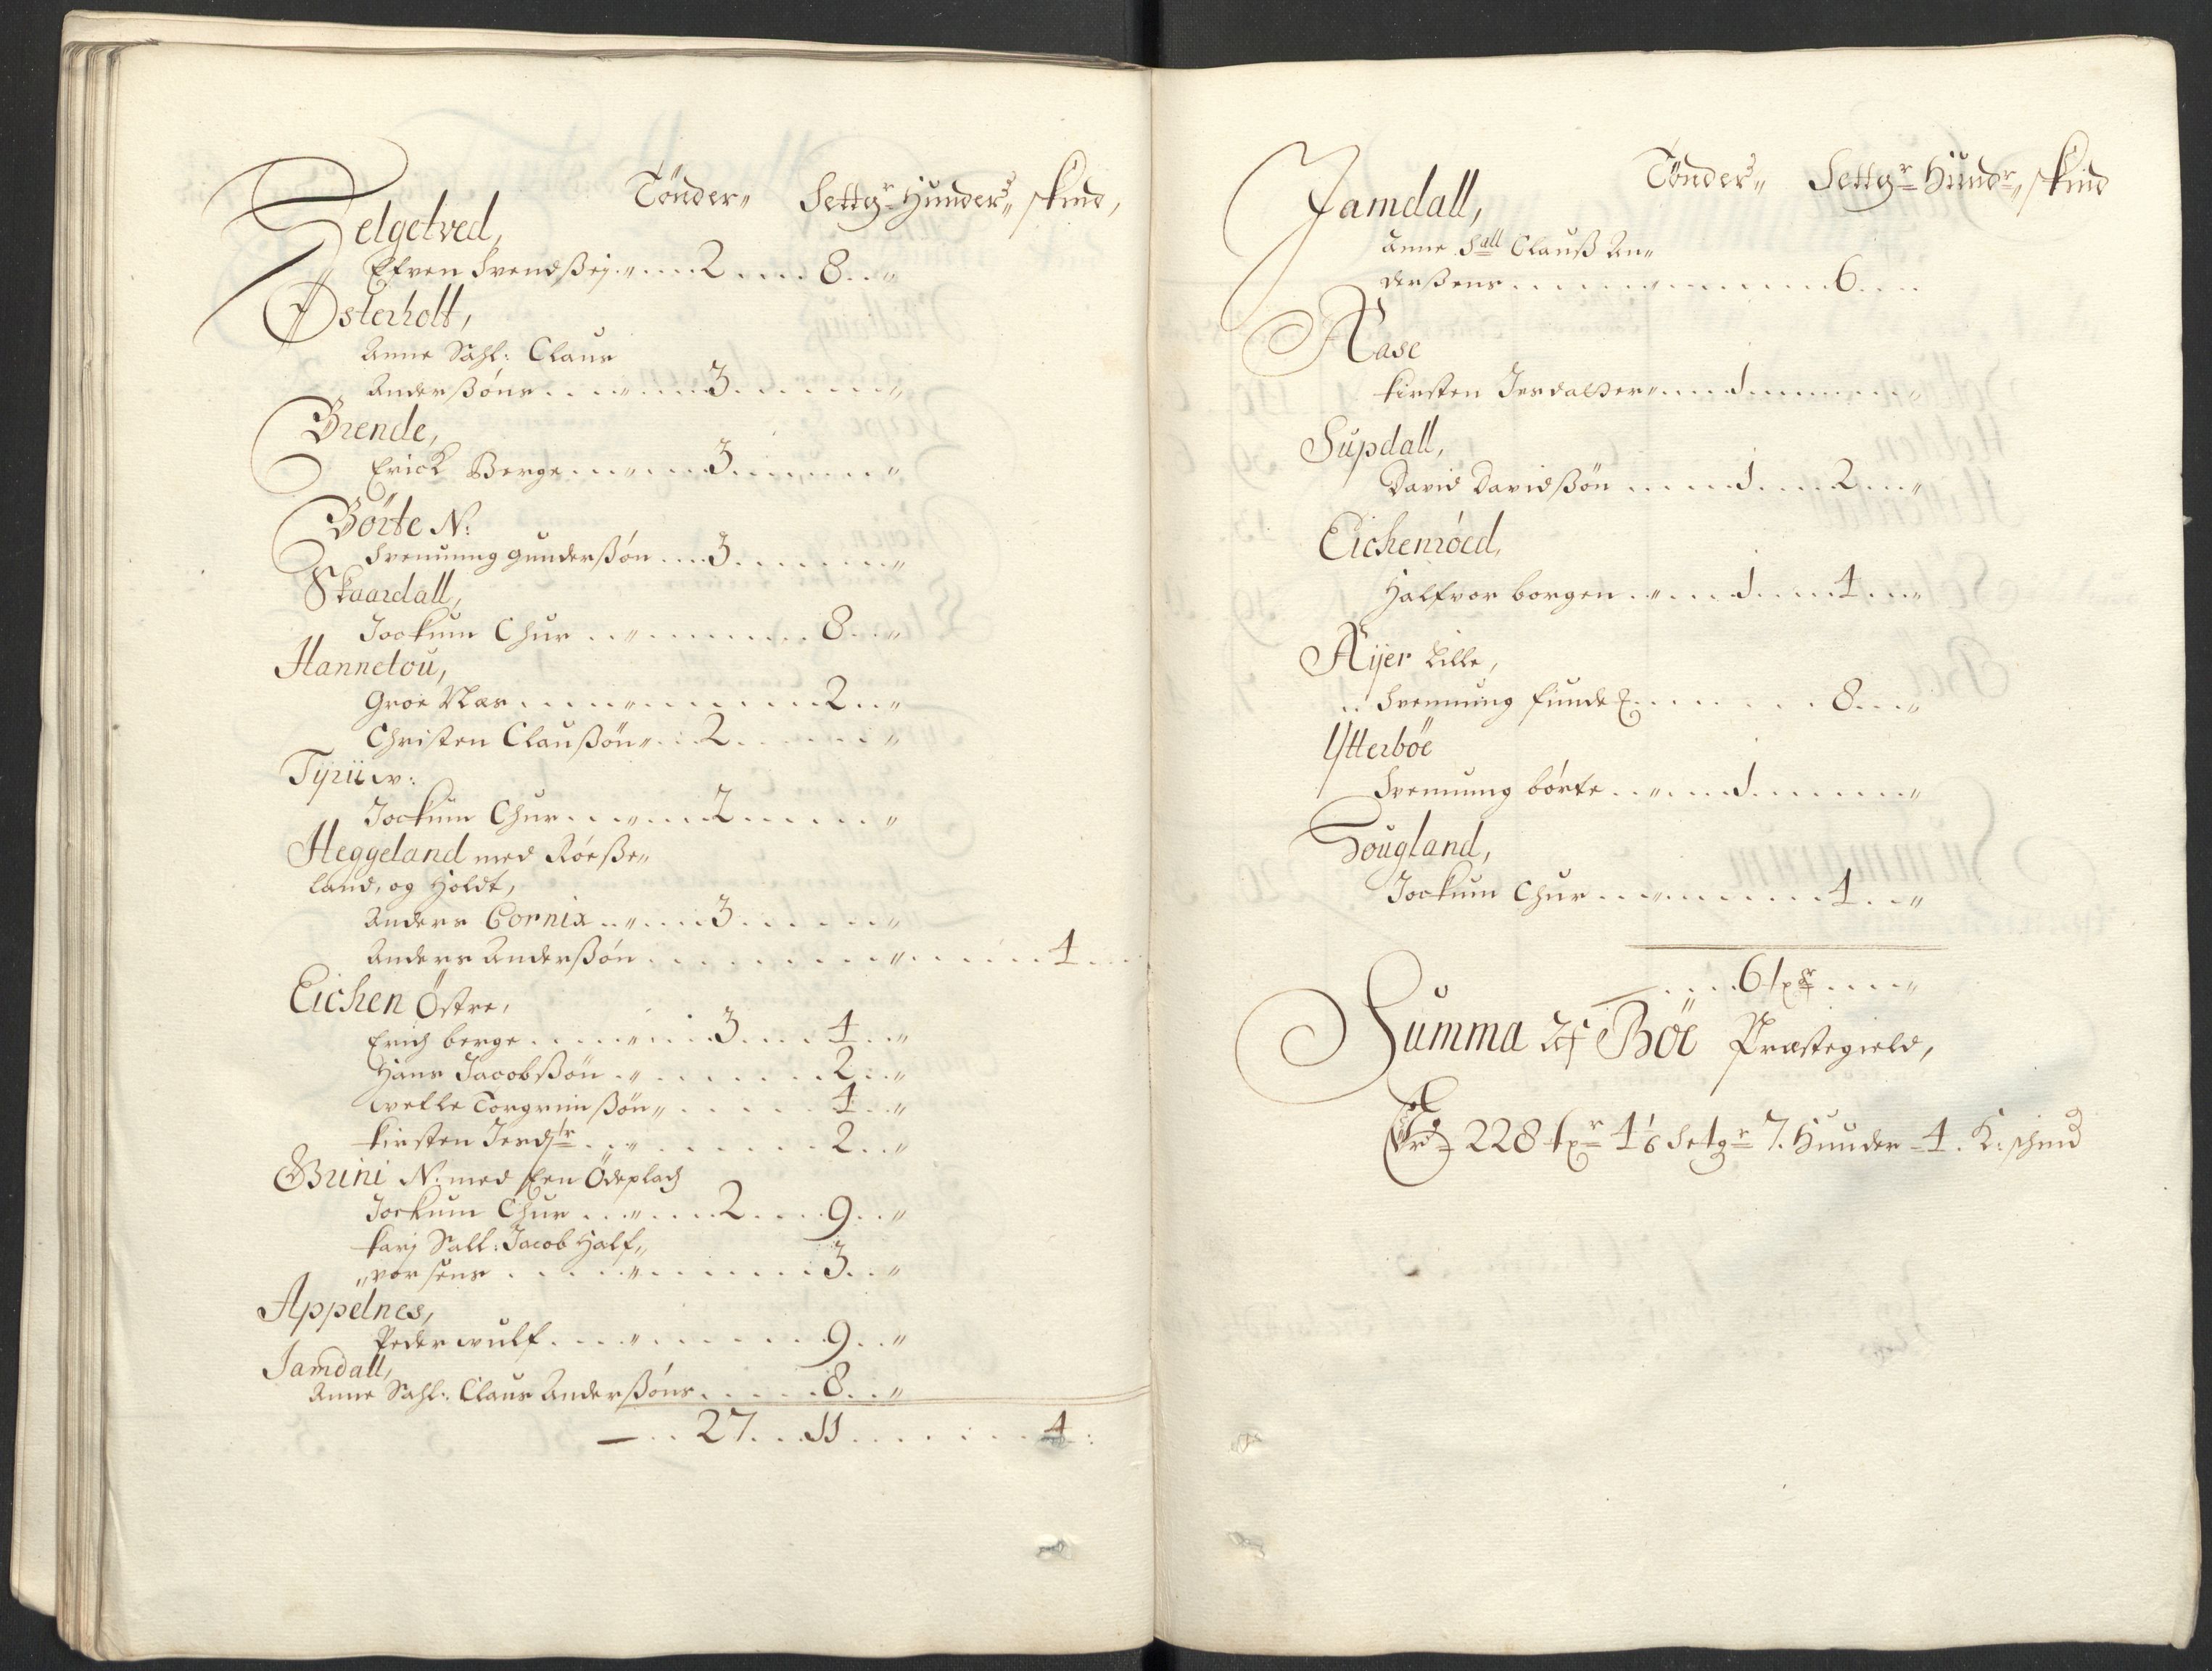 Tönder„ Settgr Hunders„ skind,
Selgetved,
Efven Svendßøn „ .... 2 .... 8 .. „
Østerholt,
Anne Sahl: Claus
Anderßöns .... „ .... 3 ........ „
Brende,
Erick Berge .... „ .... 3 ........ „
Börte N:
Svennung Gunderßön .... 3 ........ „
Skaardall,
Jockum Chur .. „ ........ 8 .. „
Hannetou,
Groe Næs .... „ ........ 2 .. „
Christen Claußön „ .. 2 ...... „
Tyrii w:
Jockum Chur .... „ .... 2 ...... „
Heggeland med Röeße„
land, og Holdt,
Anders Cornix .. „ .... 3 ...... „
Anders Anderßön ........ „ ...... 4 ...
Eichen Östre,
Erich berge .... „ .... 3 .... 4 .. „
Hans Jacobßön .. „ ...... 2 .. „
Welle Torgrimßön „ ...... 4 .. „
kirsten Jerdlr .. „ ...... 2 .. „
Bruni N: med Een Ödeplads
Jockum Chur ... „ .... 2 .... 9 .. „
kari Sall: Jacob Half„
„vorsens .... „ ...... 3 .. „
Appelnes,
Peder wulf .... „ ...... 9 .. „
Jamdall,
Anne Sahl: Claus Anderßöns ...... 8 .. „
— .. 27 ... 11 ........ 4 .:
Tönders„ Settgr Hundr„ skind
Jamdall,
Anne Sall Clauß An„
derßens .... „ ........ 6 ....
Aase
kirsten Jesdatter „ .... 1 ........ „
Supdall,
David Davidßön .... 1 .... 2 ... „
Eichenröed,
Halfvor borgen .. „ .... 1 .... 4 ... „
Aÿer Lille,
.. Svennung funde ........ 8 ... „
Ytterböe
Svennung börte .. „ ... 1 ........ „
Hougland,
Jockum Chur .. „ ........ 4 .. „
.... 6 txr .... „
Summa Af Böe Præstegield,
228 txr 4 1/6 Setgr 7. Hunder - 4. K: schind